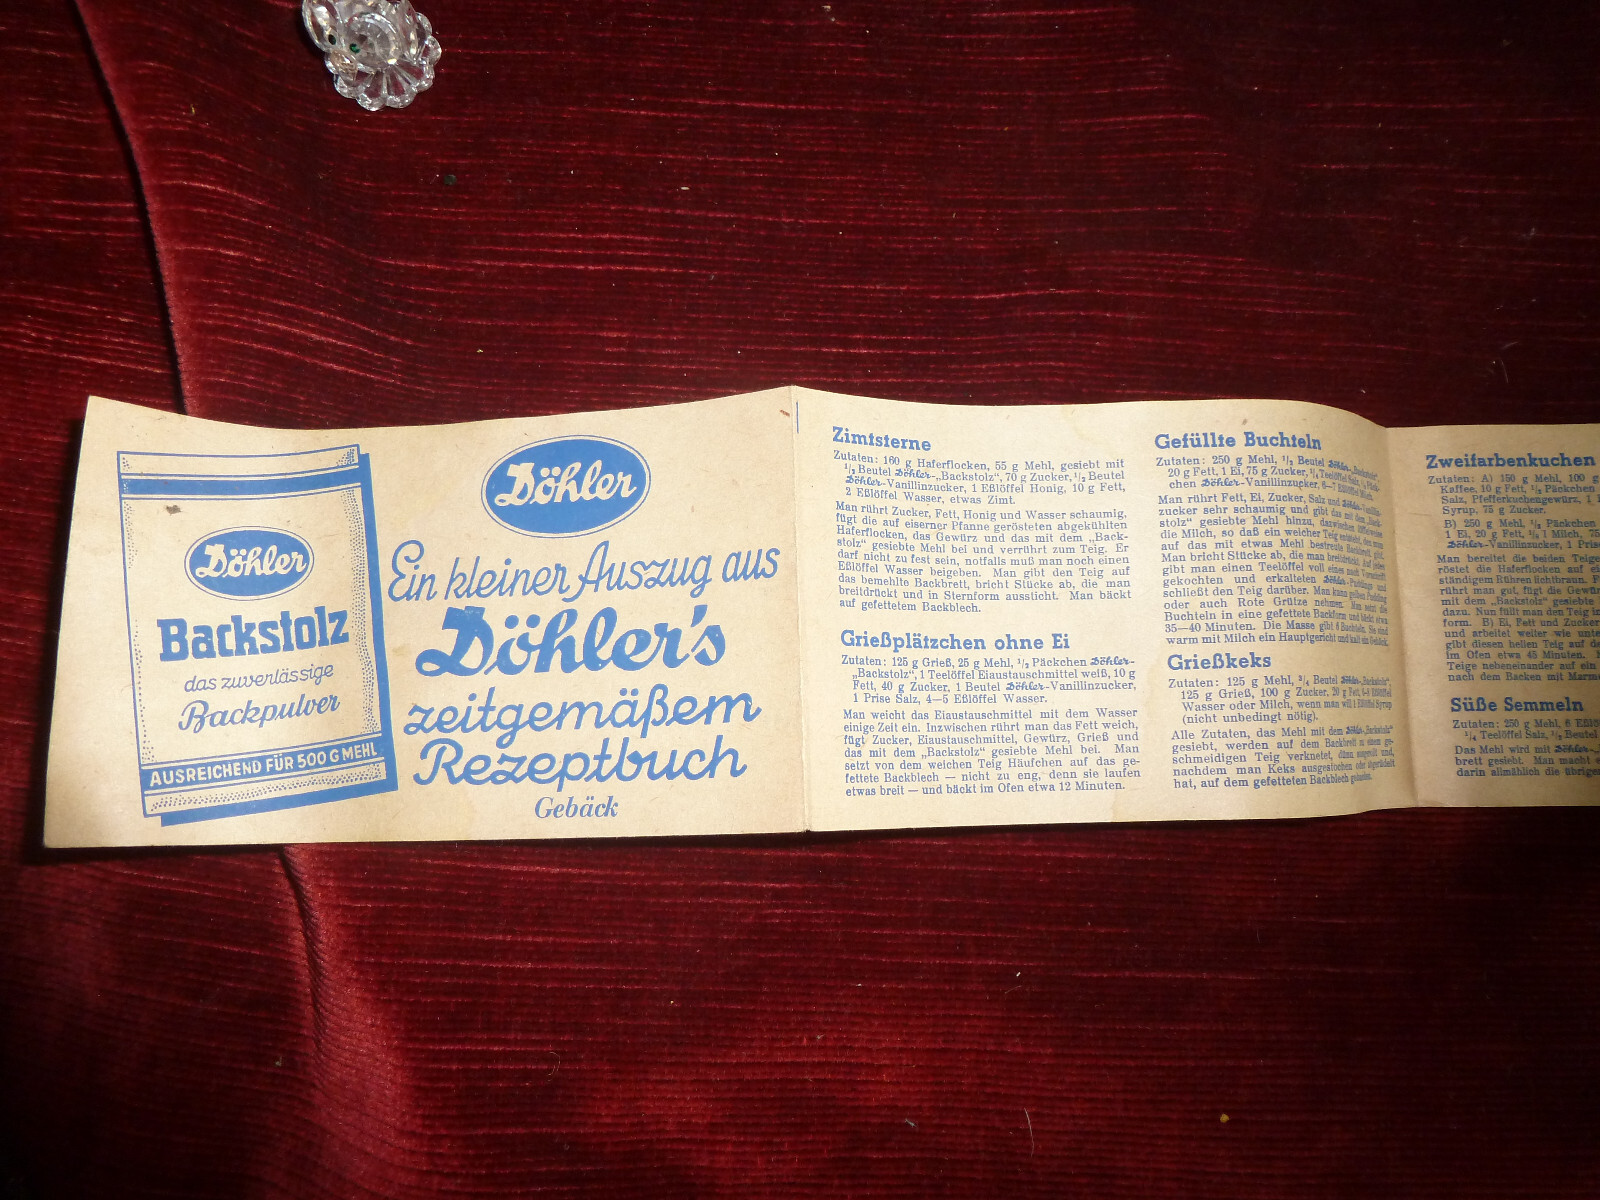 Döhler
Backstolz
das zuverlässige
Backpulver
AUSREICHEND FÜR 500 G MEHL
Döhler
Ein kleiner Auszug aus
Döhler's
zeitgemäßem
Rezeptbuch
Gebäck
Zimtsterne
Zutaten: 160 g Haferflocken, 55 g Mehl, gesiebt mit
1/3 Beutel Döhler-„Backstolz“, 70 g Zucker, 1/2 Beutel
Döhler-Vanillinzucker, 1 Eßlöffel Honig, 10 g Fett,
2 Eßlöffel Wasser, etwas Zimt.
Man rührt Zucker, Fett, Honig und Wasser schaumig,
fügt die auf eiserner Pfanne gerösteten abgekühlten
Haferflocken, das Gewürz und das mit dem „Back-
stolz“ gesiebte Mehl bei und verrührt zum Teig. Er
darf nicht zu fest sein, notfalls muß man noch einen
Eßlöffel Wasser beigeben. Man gibt den Teig auf
das bemehlte Backbrett, bricht Stücke ab, die man
breitdrückt und in Sternform aussticht. Man bäckt
auf gefettetem Backblech.
Grießplätzchen ohne Ei
Zutaten: 125 g Grieß, 25 g Mehl, 1/3 Päckchen Döhler-
„Backstolz“, 1 Teelöffel Eiaustauschmittel weiß, 10 g
Fett, 40 g Zucker, 1 Beutel Döhler-Vanillinzucker,
1 Prise Salz, 4—5 Eßlöffel Wasser.
Man weicht das Eiaustauschmittel mit dem Wasser
einige Zeit ein. Inzwischen rührt man das Fett weich,
fügt Zucker, Eiaustauschmittel, Gewürz, Grieß und
das mit dem „Backstolz“ gesiebte Mehl bei. Man
setzt von dem weichen Teig Häufchen auf das ge-
fettete Backblech — nicht zu eng, denn sie laufen
etwas breit — und bäckt im Ofen etwa 12 Minuten.
Gefüllte Buchteln
Zutaten: 250 g Mehl, 1/2 Beutel Döhler-„Backstolz“,
20 g Fett, 1 Ei, 75 g Zucker, 1/4 Teelöffel Salz, 1/2 Päck-
chen Döhler-Vanillinzucker, 6—7 Eßlöffel Milch.
Man rührt Fett, Ei, Zucker, Salz und Döhler-Vanillin-
zucker sehr schaumig und gibt das mit dem „Back-
stolz“ gesiebte Mehl hinzu, dazwischen löffelweise
die Milch, so daß ein weicher Teig entsteht, den man
auf das mit etwas Mehl bestreute Backbrett gibt.
Man bricht Stücke ab, die man breitdrückt. Auf jedes
gibt man einen Teelöffel voll eines nach Vorschrift
gekochten und erkalteten Döhler-Puddings und
schließt den Teig darüber. Man kann gelben Pudding
oder auch Rote Grütze nehmen. Man setzt die
Buchteln in eine gefettete Backform und bäckt etwa
35—40 Minuten. Die Masse gibt 8 Buchteln. Sie sind
warm mit Milch ein Hauptgericht und kalt ein Gebäck.
Grießkeks
Zutaten: 125 g Mehl, 3/4 Beutel Döhler-„Backstolz“,
125 g Grieß, 100 g Zucker, 20 g Fett, 6—8 Eßlöffel
Wasser oder Milch, wenn man will 1 Eßlöffel Syrup
(nicht unbedingt nötig).
Alle Zutaten, das Mehl mit dem Döhler-„Backstolz“
gesiebt, werden auf dem Backbrett zu einem ge-
schmeidigen Teig verknetet, dünn ausgerollt und,
nachdem man Keks ausgestochen oder abgerädelt
hat, auf dem gefetteten Backblech gebacken.
Zweifarbenkuchen
Zutaten: A) 150 g Mehl, 100 g
Kaffee, 10 g Fett, 1/2 Päckchen
Salz, Pfefferkuchengewürz, 1
Syrup, 75 g Zucker.
B) 250 g Mehl, 1/2 Päckchen
1 Ei, 20 g Fett, 1/4 l Milch, 75
Döhler-Vanillinzucker, 1 Prise
Man bereitet die beiden Teige
röstet die Haferflocken auf
ständigem Rühren lichtbraun.
rührt man gut, fügt die Gewür
mit dem „Backstolz“ gesiebte
dazu. Nun füllt man den Teig in
form. B) Ei, Fett und Zucker
und arbeitet weiter wie unte
gibt diesen hellen Teig auf de
im Ofen etwa 45 Minuten.
Teige nebeneinander auf ein
nach dem Backen mit Marme
Süße Semmeln
Zutaten: 250 g Mehl, 6 Eßlö
1/4 Teelöffel Salz, 1/2 Beutel
Das Mehl wird mit Döhler-
brett gesiebt. Man macht e
darin allmählich die übrige